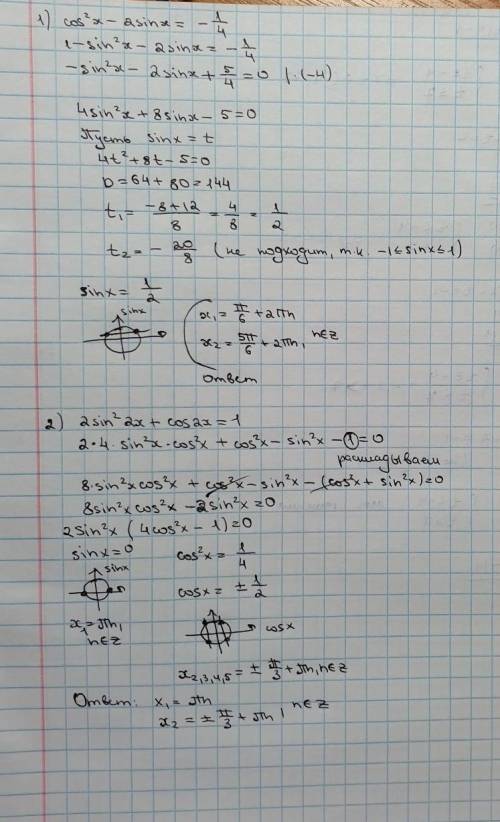 1) cos²x - 2sinx = - 1/4
1 - sin²x - 2sinx = - 1/4
-sin²x - 2sinx + 5/4 = 0 |·(-4)
4sin²x + 8sinx - 5 = 0
Пусть sinx = t
4t² + 8t - 5 = 0
D = 64 + 80 = 144
t₁ = (-8+12)/8 = 4/8 = 1/2
t₂ = - 20/8 (не подходит, т.к. -1 ≤ sinx ≤ 1)
sinx = 1/2
sinx
x₁ = π/6 + 2πn
x₂ = 5π/6 + 2πn, n∈Z
ответ
2) 2sin²2x + cos2x = 1
2·4·sin²x·cos²x + cos²x - sin²x - 1 = 0
раскладываем
8·sin²x cos²x + cos²x - sin²x - (cos²x + sin²x) = 0
8sin²x cos²x - 2sin²x = 0
2sin²x (4cos²x - 1) = 0
sinx = 0 cos²x = 1/4
sinx cosx = ± 1/2
cosx
x₁ = πn, n∈Z
x₂,₃,₄,₅ = ± π/3 + πn, n∈Z
Ответ: x₁ = πn
x₂ = ± π/3 + πn, n∈Z